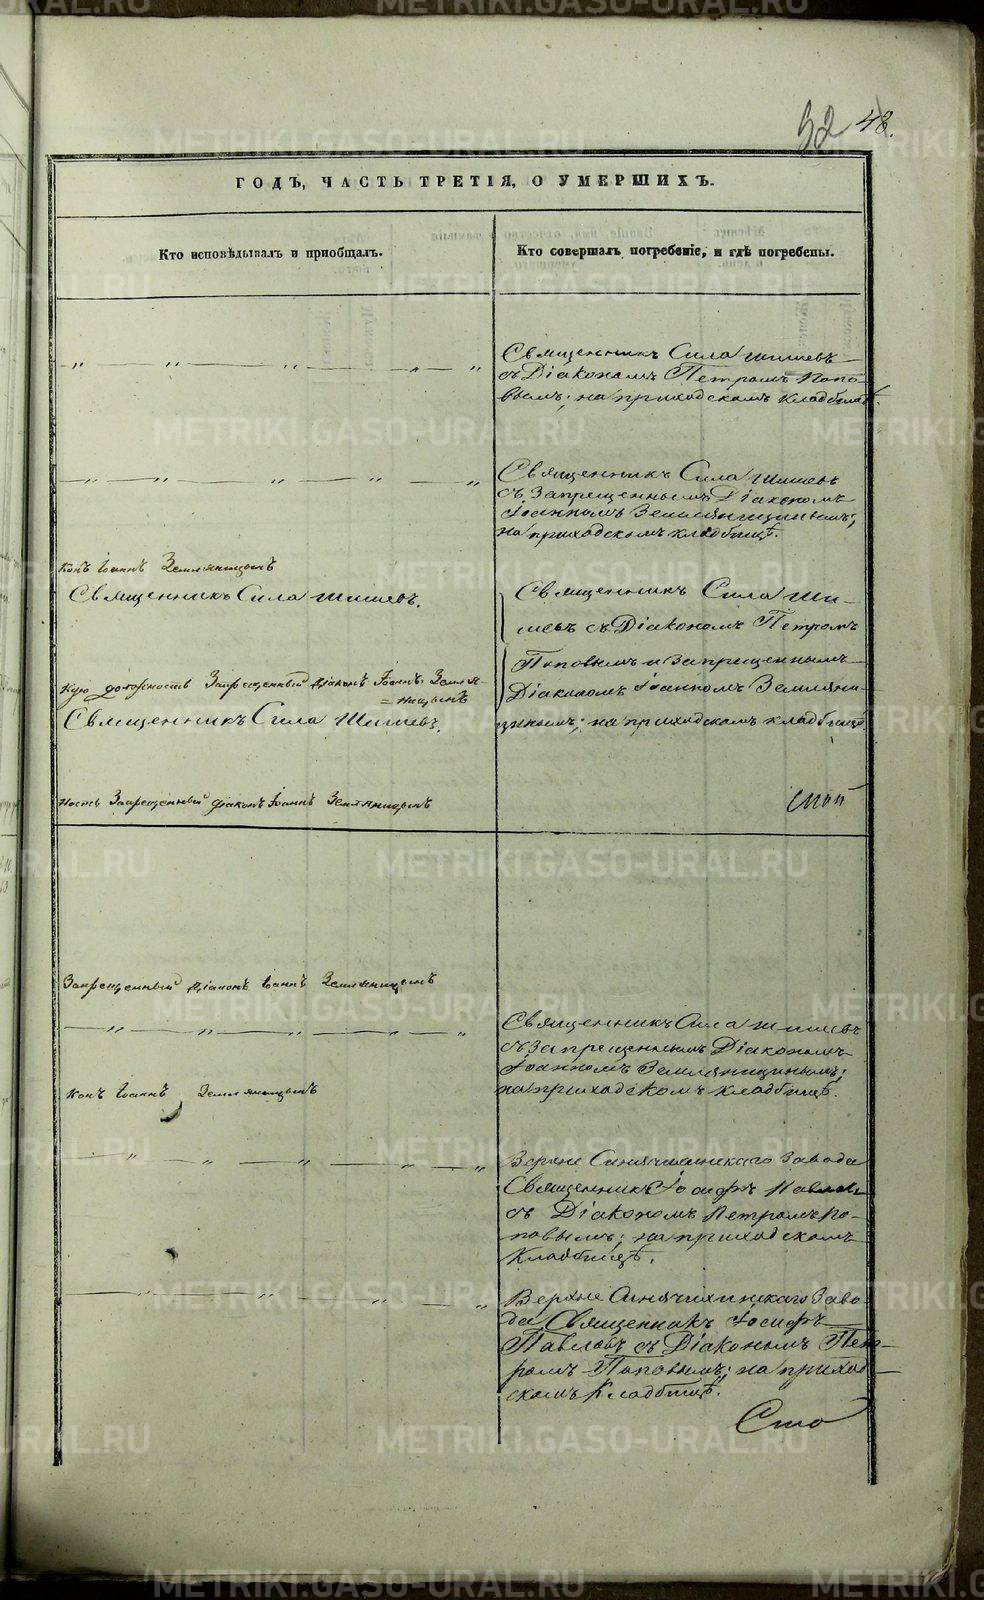 52 48.
ГОДЪ, ЧАСТЬ ТРЕТІЯ, О УМЕРШИХЪ.
Кто исповѣдывалъ и приобщалъ.
Кто совершалъ погребеніе, и гдѣ погребены.
Священникъ Сила Шишевъ
съ Діакономъ Петромъ Попо-
вымъ; на приходскомъ кладбищѣ.
Священникъ Сила Шишевъ
съ запрещеннымъ Діакономъ
Іоанномъ Земляницынымъ;
на приходскомъ кладбищѣ.
конъ Іоаннъ Земляницынъ
Священникъ Сила Шишевъ.
Священникъ Сила Ши-
шевъ съ Діакономъ Петромъ
Поповымъ и запрещеннымъ
Діакономъ Іоанномъ Земляни-
цынымъ; на приходскомъ кладбищѣ.
кую должность Запрещенный діаконъ Іоаннъ Земля-
=ницынъ
Священникъ Сила Шишевъ.
ность Запрещенный діаконъ Іоаннъ Земляницынъ
Запрещенный діаконъ Іоаннъ Земляницынъ
Священникъ Сила Шишевъ
съ запрещеннымъ Діакономъ
Іоанномъ Земляницынымъ;
на приходскомъ кладбищѣ.
конъ Іоаннъ Земляницынъ
Верхне Синячихинскаго завода
Священникъ Іосифъ Павловъ
съ Діакономъ Петромъ По-
повымъ; на приходскомъ
кладбищѣ.
Верхне Синячихинскаго заво-
да Священникъ Іосифъ
Павловъ съ Діакономъ Пет-
ромъ Поповымъ; на приход-
скомъ кладбищѣ.
Сто
METRIKI.GASO-URAL.RU